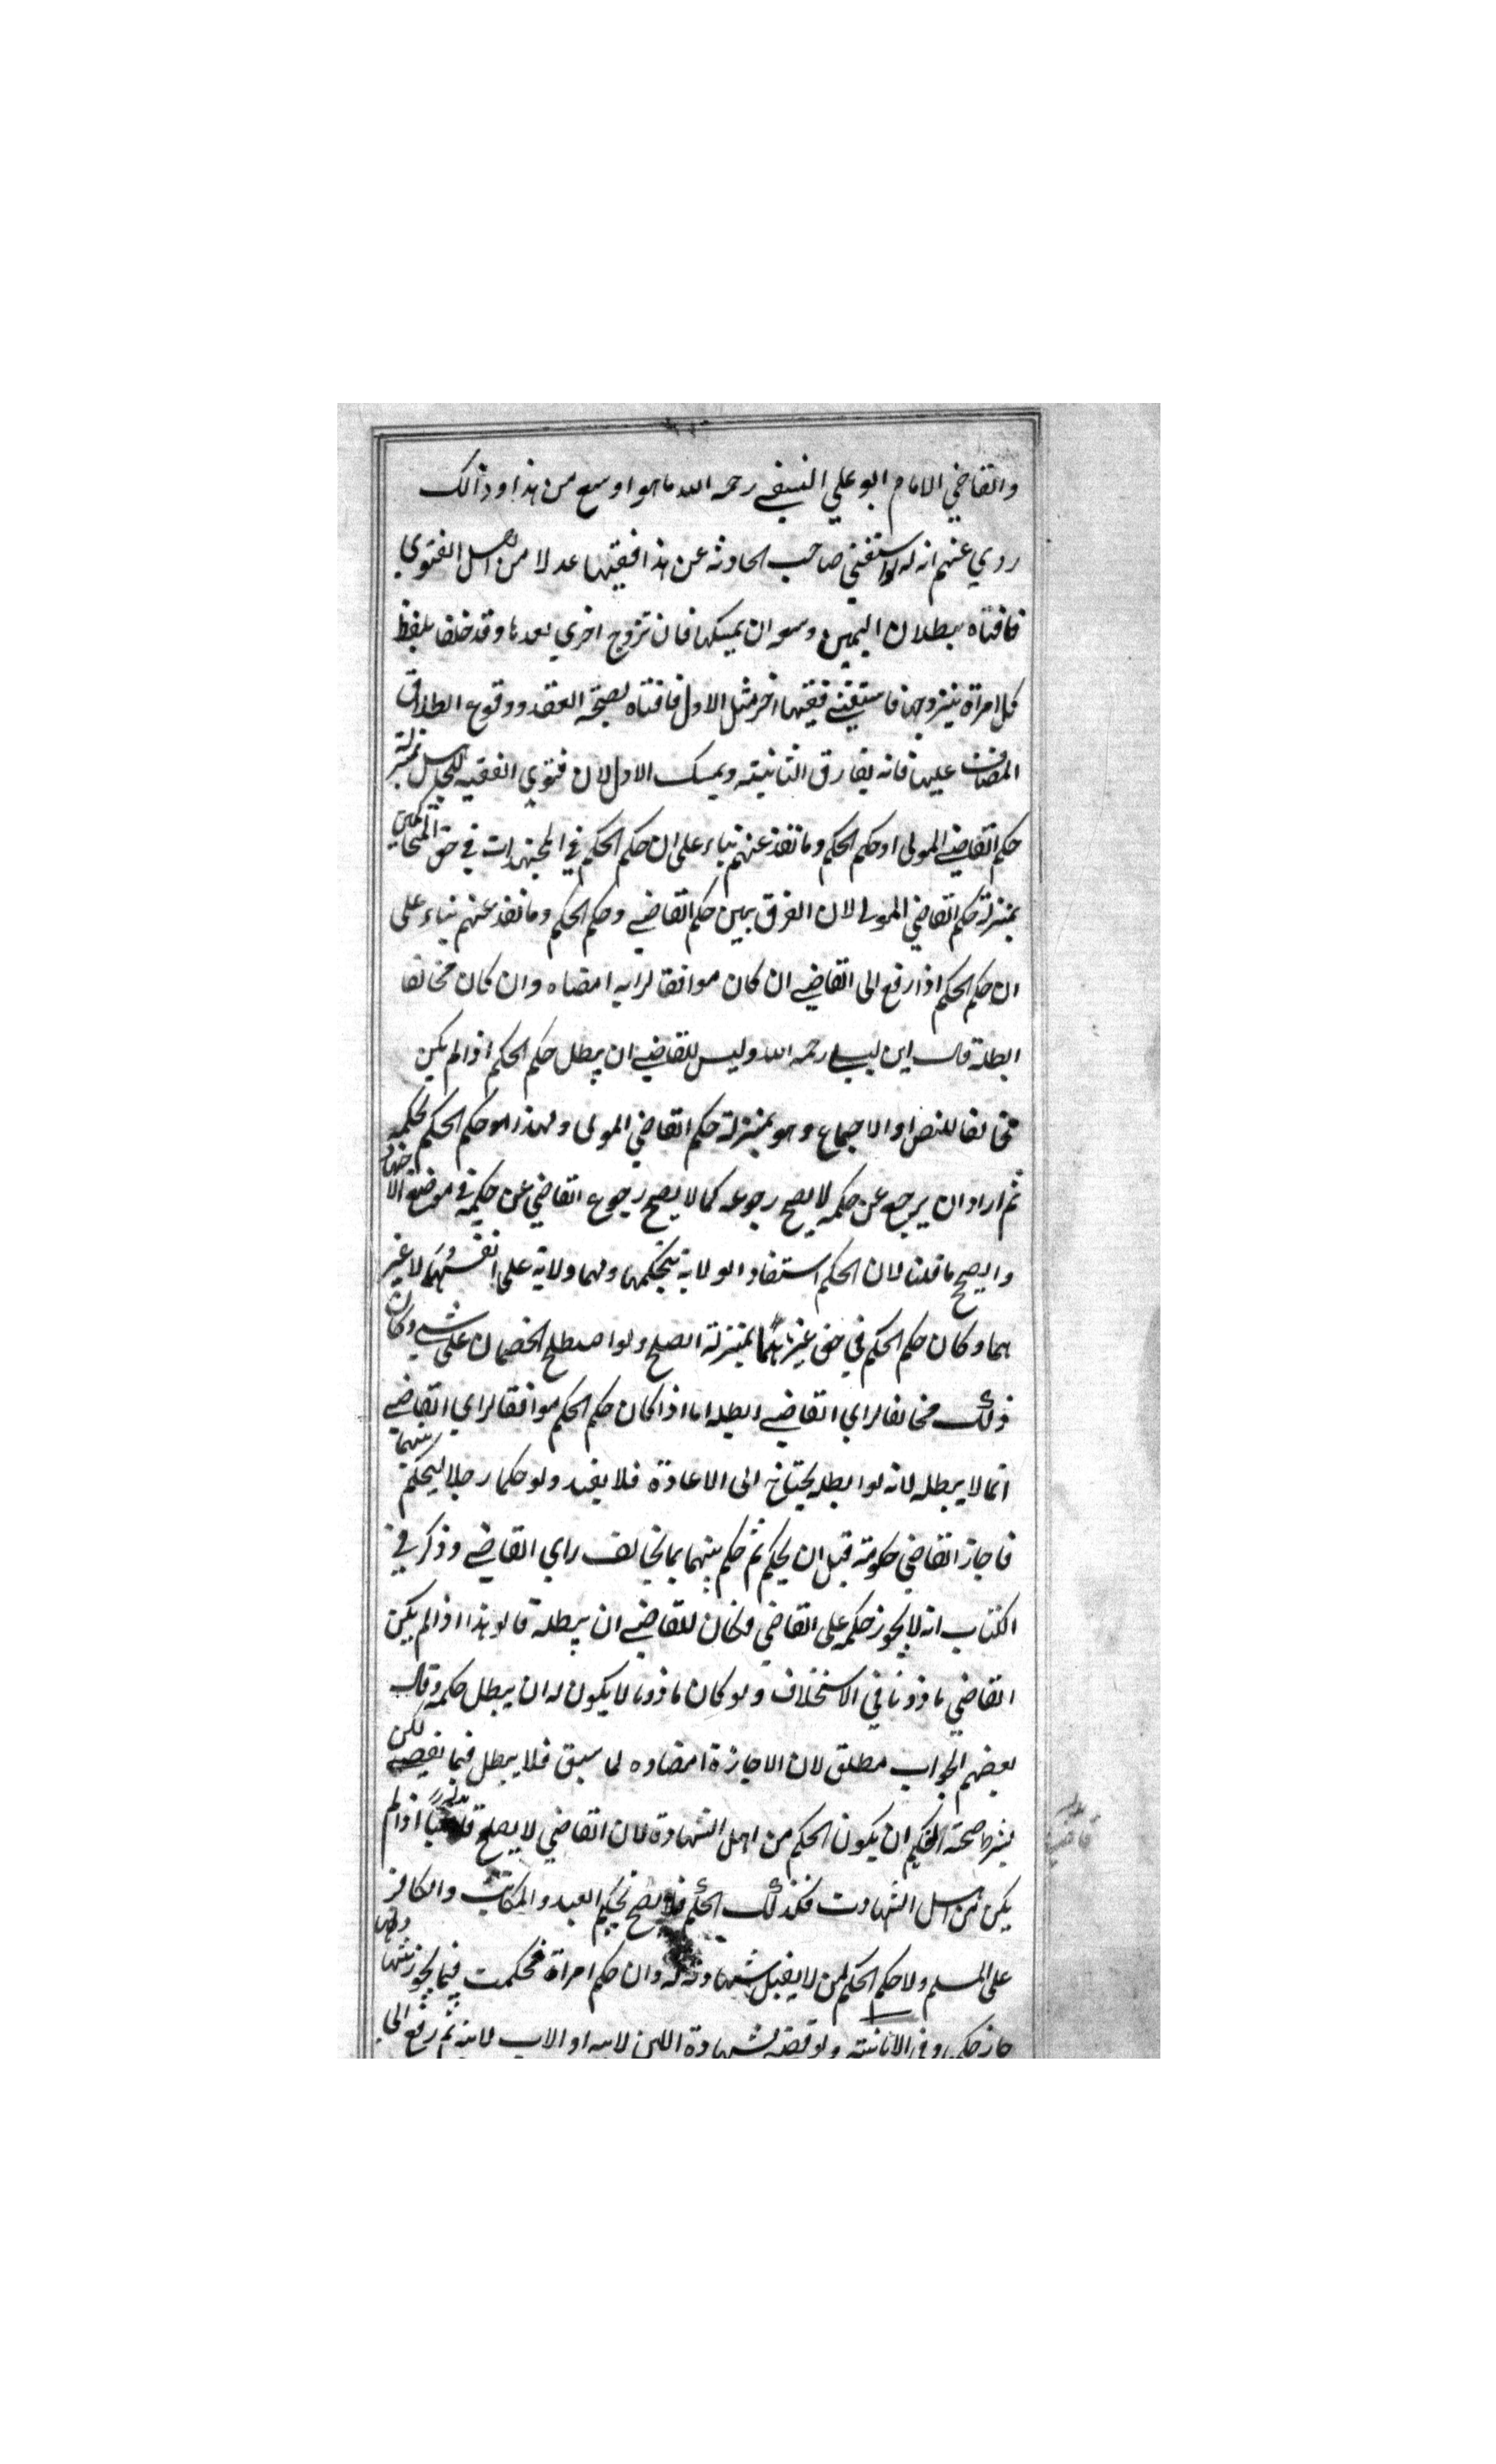 والقاضي الامام ابو علي النسفي رحمه الله ما هو اوسع من هذا وذالك
روي عنهم انه لو استفتي صاحب الحادثه عن هذا فقيها عدلا من اهل الفتوي
فافتاه ببطلان اليمين وسعه ان يمسكها فان تزوج اخري بعدها وقد حلف بلفظ
كل امراة يتزوجها فاستفتي فقيها اخر مثل الاول فافتاه بصحة العقد ووقوع الطلاق
المضاف عليها فانه يفارق الثانيته ويمسك الاول لان فتوي الفقيه للجاهل بمنزلة
حكم القاضي المولي او حكم الحكم وما نفذ عنهم بناء علي ان حكم الحكم في المجتهدات في حق المتحاكمين
بمنزلة حكم القاضي المولي لان الفرق بين حكم القاضي وحكم الحكم وما نفذ عنهم بناء علي
ان حكم الحكم اذا رفع الي القاضي ان كان موافقا لرايه امضاه وان كان مخالفا
ابطله قال ابن ليلي رحمه الله وليس للقاضي ان يبطل حكم الحكم اذا لم يكن
مخالفا للنص او الاجماع وهو بمنزلة حكم القاضي المولي ولهذا لو حكم الحكم بحكمه
ثم اراد ان يرجع عن حكمه لا يصح رجوعه كما لا يصح رجوع القاضي عن حكمه في موضع الاجتهاد
والصحيح ما قلنا لان الحكم استفاد الولاية بتحكمها ولهما ولاية علي انفسهما لا غير
هما وكان حكم الحكم في حق غيرهما بمنزلة الصلح ولو اصطلح الخصمان علي شي وكان
ذلك مخالفا لراي القاضي ابطله اما اذا كان حكم الحكم موافقا لراي القاضي
انما لا يبطله لانه لو ابطله يحتاج الي الاعادة فلا يفيد ولو حكما رجلا ليحكم بينهما
فاجاز القاضي حكومته قبل ان يحكم ثم حكم بينهما بما يخالف راي القاضي وذكر في
الكتاب انه لا يجوز حكمه علي القاضي وكان للقاضي ان يبطله قالو هذا اذا لم يكن
القاضي ماذونا في الاستخلاف ولو كان ماذونا لا يكون له ان يبطل حكمه وقال
بعضهم الجواب مطلق لان الاجازة امضاوه لما سبق فلا يبطل فيما يقضي لكن
بشرط صحة التحكيم ان يكون الحكم من اهل الشهادة لان القاضي لا يصلح قاضيا اذا لم
يكن من اهل الشهادت فكذلك الحكم فلا يصح تحكيم العبد والمكاتب والكافر
علي المسلم ولا حكم الحكم لمن لا يقبل شهادته له وان حكم امراة فحكمت فيما يجوز شهادتها
جاز حكمها وفي الاثانيته ولو قضي بشهادة الابن لابيه او الاب لابنه ثم رفع الي